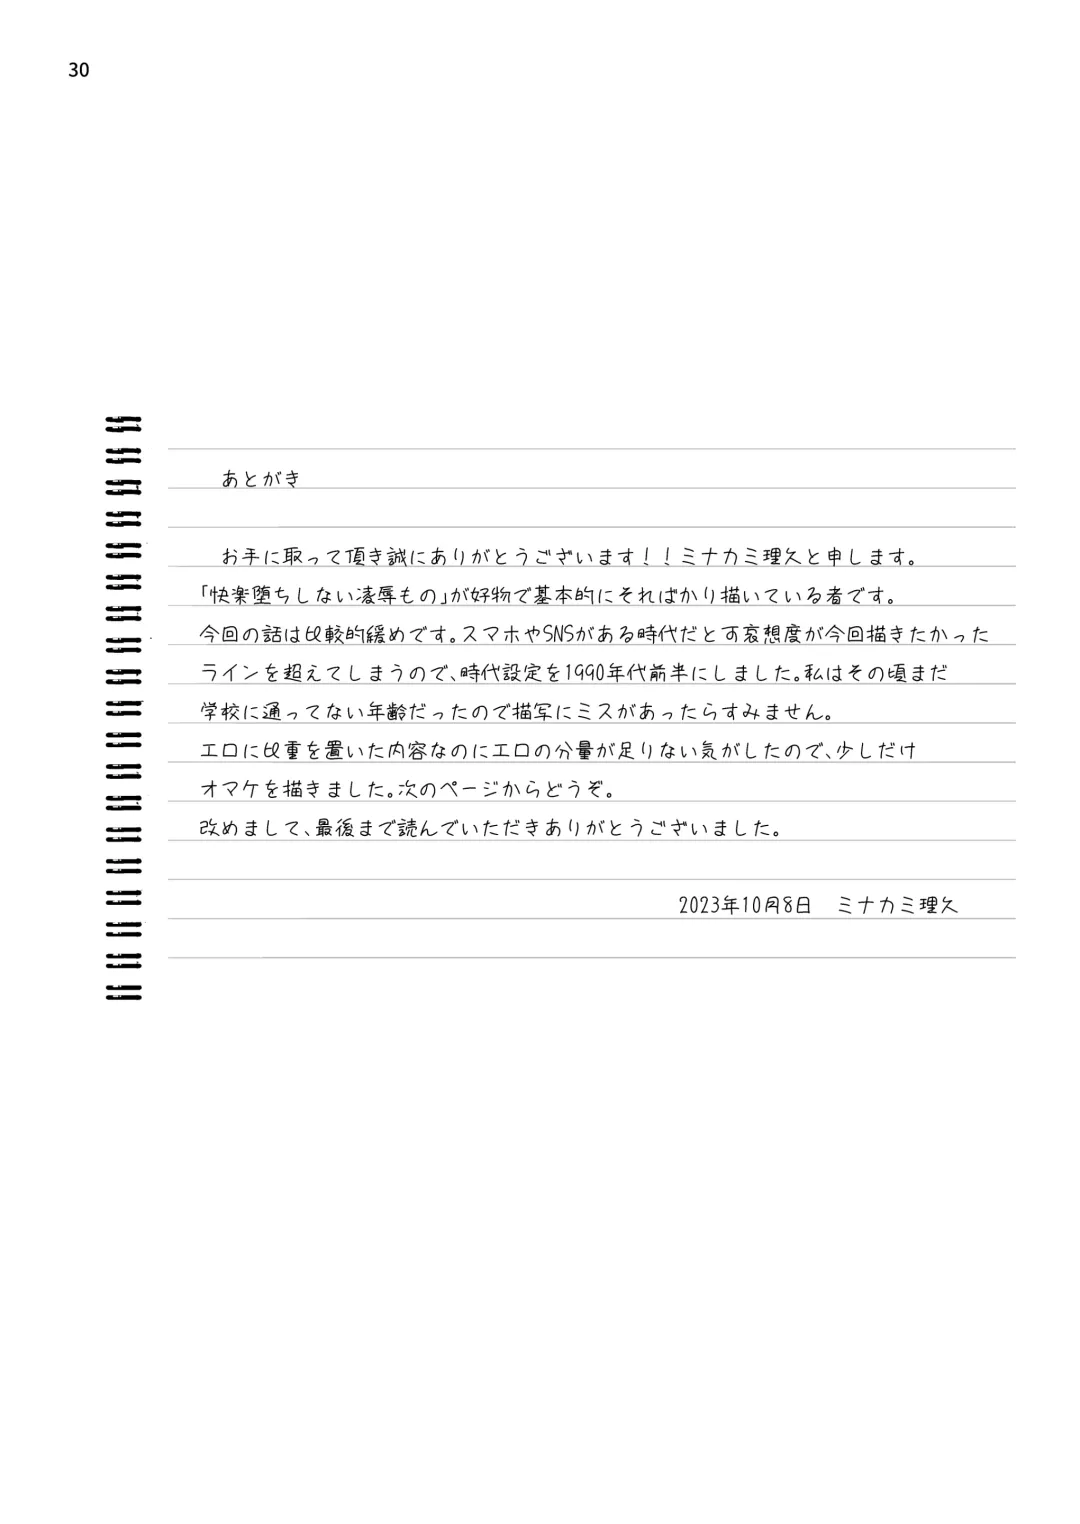 30
あとがき
お手に取って頂き誠にありがとうございます！！ミナカミ理久と申します。
「快楽堕ちしない凌辱もの」が好物で基本的にそればかり描いている者です。
今回の話は比較的緩めです。スマホやSNSがある時代だと可哀想度が今回描きたかった
ラインを超えてしまうので、時代設定を1990年代前半にしました。私はその頃まだ
学校に通ってない年齢だったので描写にミスがあったらすみません。
エロに比重を置いた内容なのにエロの分量が足りない気がしたので、少しだけ
オマケを描きました。次のページからどうぞ。
改めまして、最後まで読んでいただきありがとうございました。
2023年10月8日　ミナカミ理久